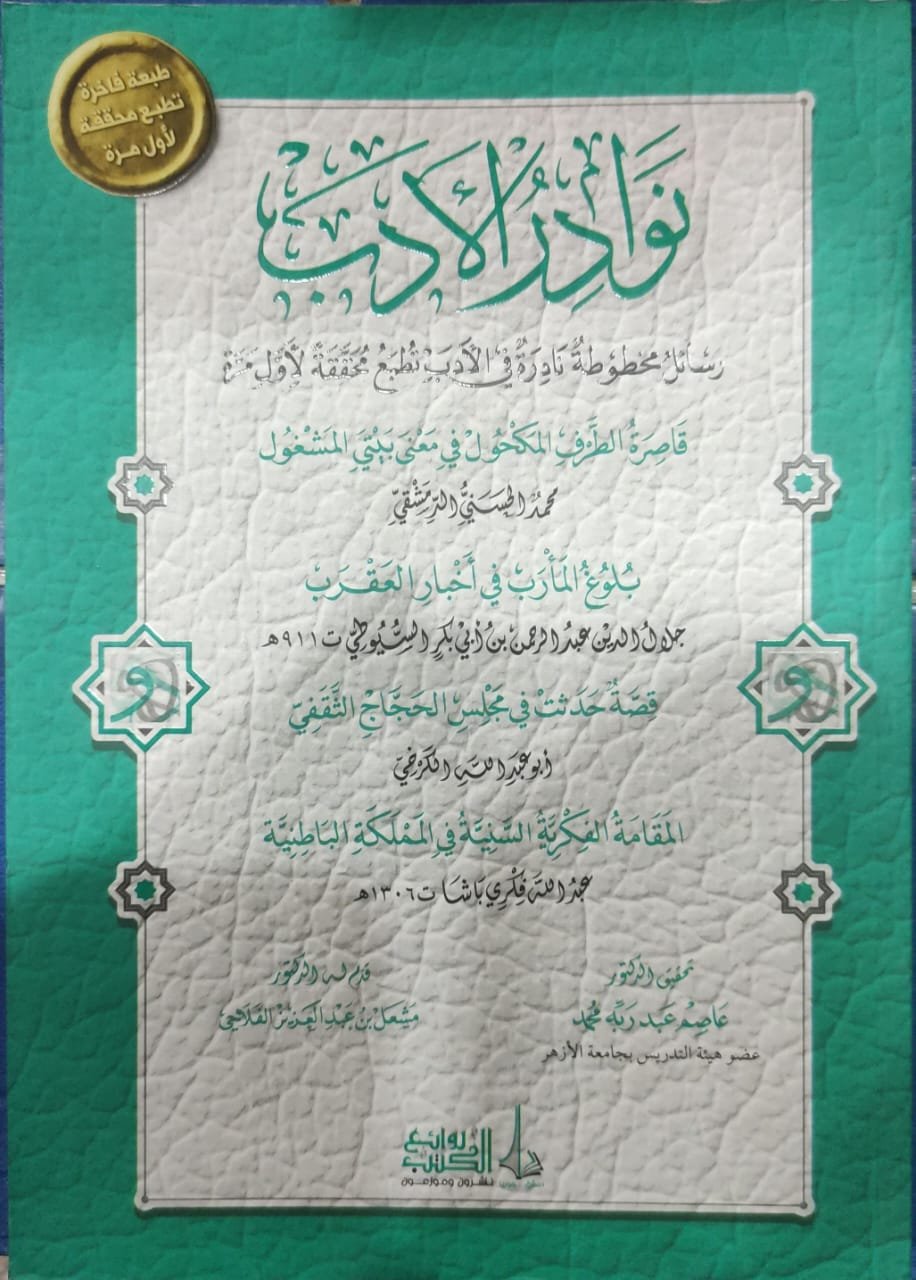 طبعة فاخرة
تطبع محققة
لأول مرة
نَوَادِرُ الأَدَبْ
رسَائِلُ مَخطوُطةٌ نَادِرَةٌ فِي الأَدَبْ تُطبَعُ مُحَقَّقَةً لأَوَّلِ مَرَّةٍ
قَاصِرَةُ الطَّرْفِ المَكْحُولْ فِي مَعْنَى بَيْتَيِ المَشْغُول
محمدٌ الحسَنيُّ الدِّمَشْقيِّ
بُلُوغُ المَأْرَبْ فِي أَخْبارِ العَقْرَب
جلالُ الدين عبدُ الرحمن بنُ أبي بكرٍ السُّيُوطيّ ت ٩١١هـ
قِصَّةٌ حَدَثتْ فِي مَجْلِسِ الحَجَّاجْ الثَّقَفِيّ
أبو عَبدِ اللهِ الكَرْخيّ
المَقَامَةُ الفِكْرِيَّةُ السَّنِيَّةُ فِي المَمْلَكَةِ البَاطِنِيَّة
عبدُ الله فِكْري بَاشَا ت ١٣٠٦هـ
تحقيق الدكتور
عَاصِم عَبد رَبِّه مُحمد
عضو هيئة التدريس بجامعة الأزهر
قدم له الدكتور
مشعل بن عَبْد العَزيز الفَلَاحِي
روائع
الكتب
ناشرون وموزعون